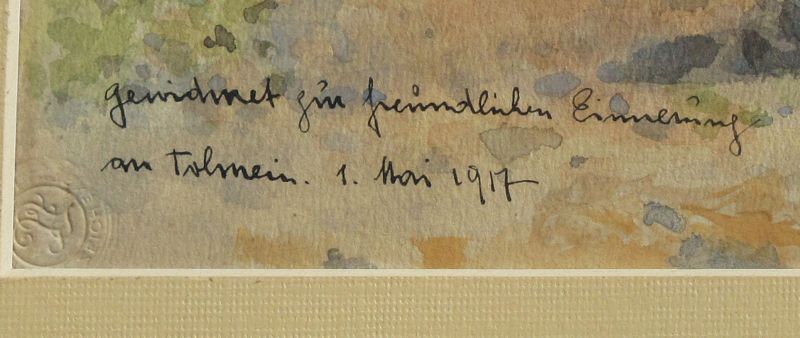 gewidmet zur freundlichen Erinnerung
an Tolmein. 1. Mai 1917